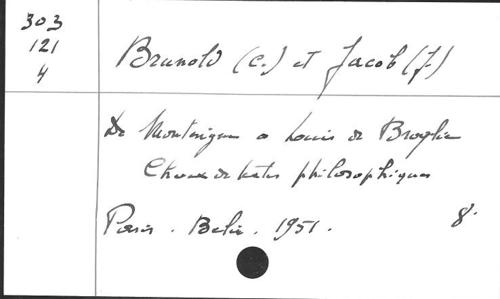 303
121
4
Brunold (C.) et Jacob (J.)
De Montaigne a Louis de Broglie
Choix de textes philosophiques
Paris. Belin. 1951. 8°